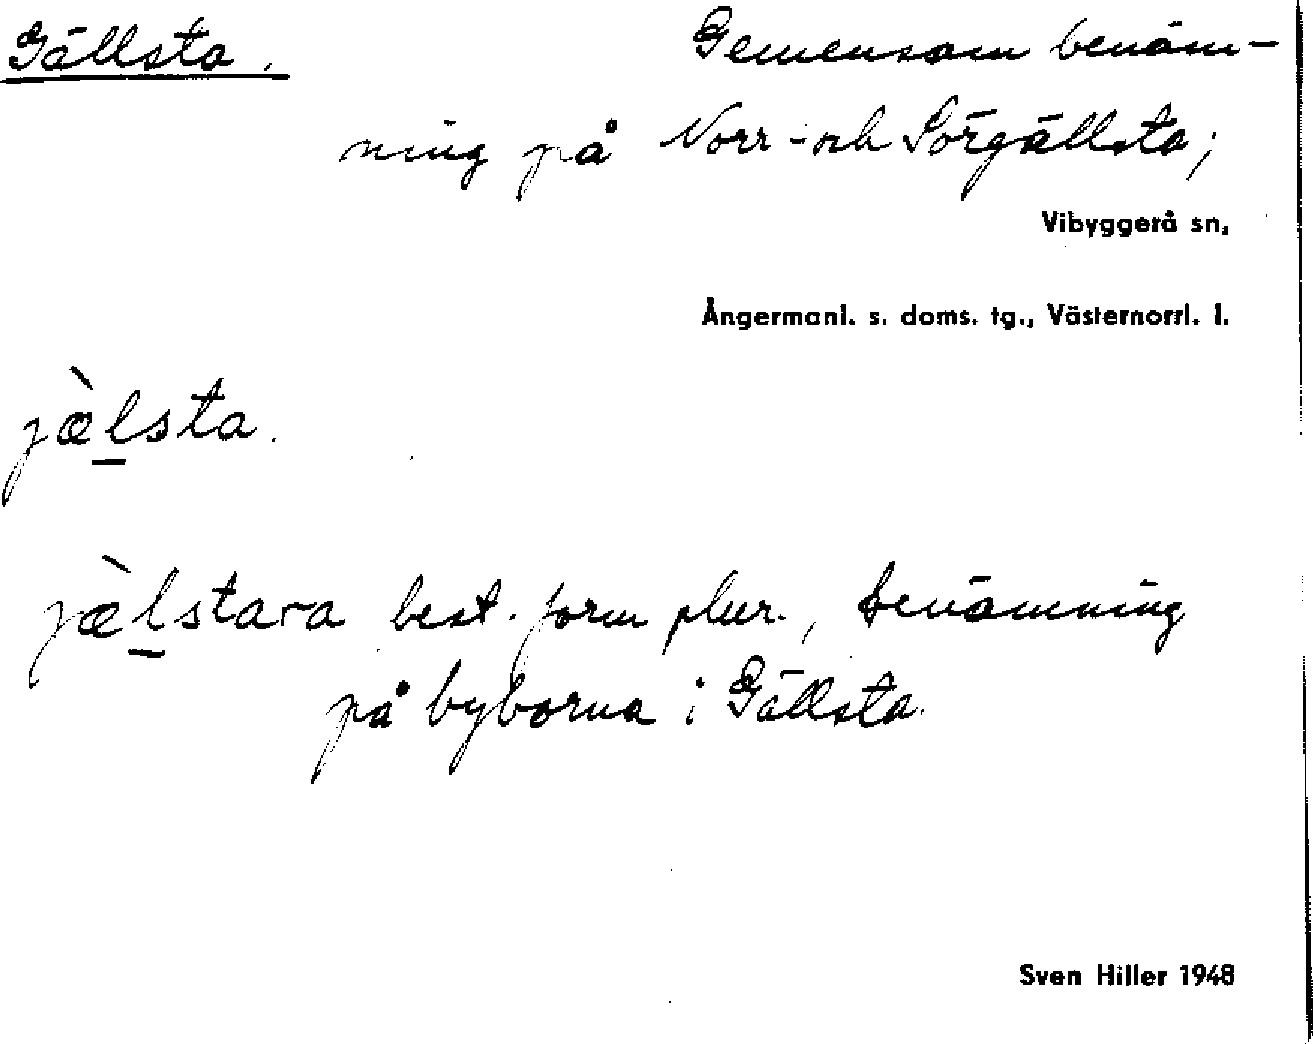 Gällsta. Gemensam benäm-
ning på Norr- och Sörgällsta;
Vibyggerå sn,
Ångermanl. s. doms. tg., Västernorrl. l.
jæ̀l̠sta.
jæ̀l̠stara best. form plur., benämning
på byborna i Gällsta.
Sven Hiller 1948